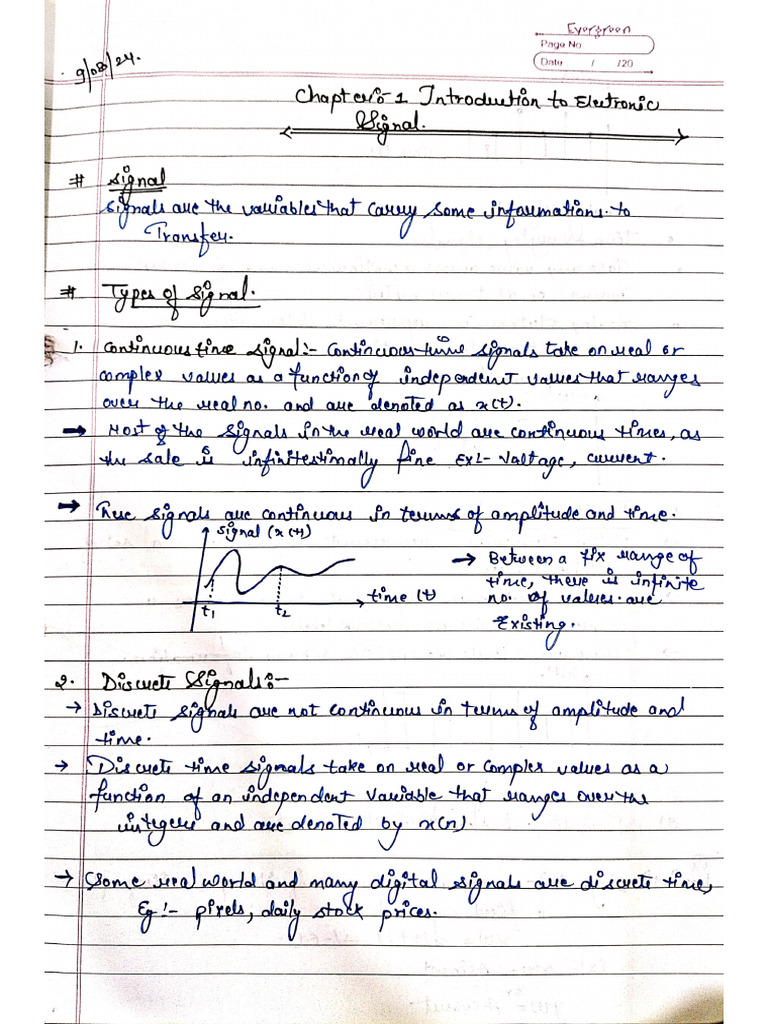 Evergreen
Page No
Date / /20
9/08/24.
Chapter:-1 Introduction to Electronic
Signal.
# Signal
Signals are the variables that carry some informations to
Transfer.
# Types of Signal.
1. Continuous time signal:- Continuous time signals take on real or
complex values as a function of independent values that ranges
over the real no. and are denoted as x(t).
→ Most of the signals in the real world are continuous times, as
the sale is infinitestimally fine Ex:- Voltage, current.
→ These signals are continuous in terms of amplitude and time.
signal (x(t))
→ Between a fix range of
time, there is infinite
time (t)
no. of values are
t1 t2
Existing.
2. Discrete Signals:-
→ Discrete signals are not continuous in terms of amplitude and
time.
→ Discrete time signals take on real or complex values as a
function of an independent variable that ranges over the
integers and are denoted by x(n).
→ Some real world and many digital signals are discrete time,
Eg:- pixels, daily stock prices.